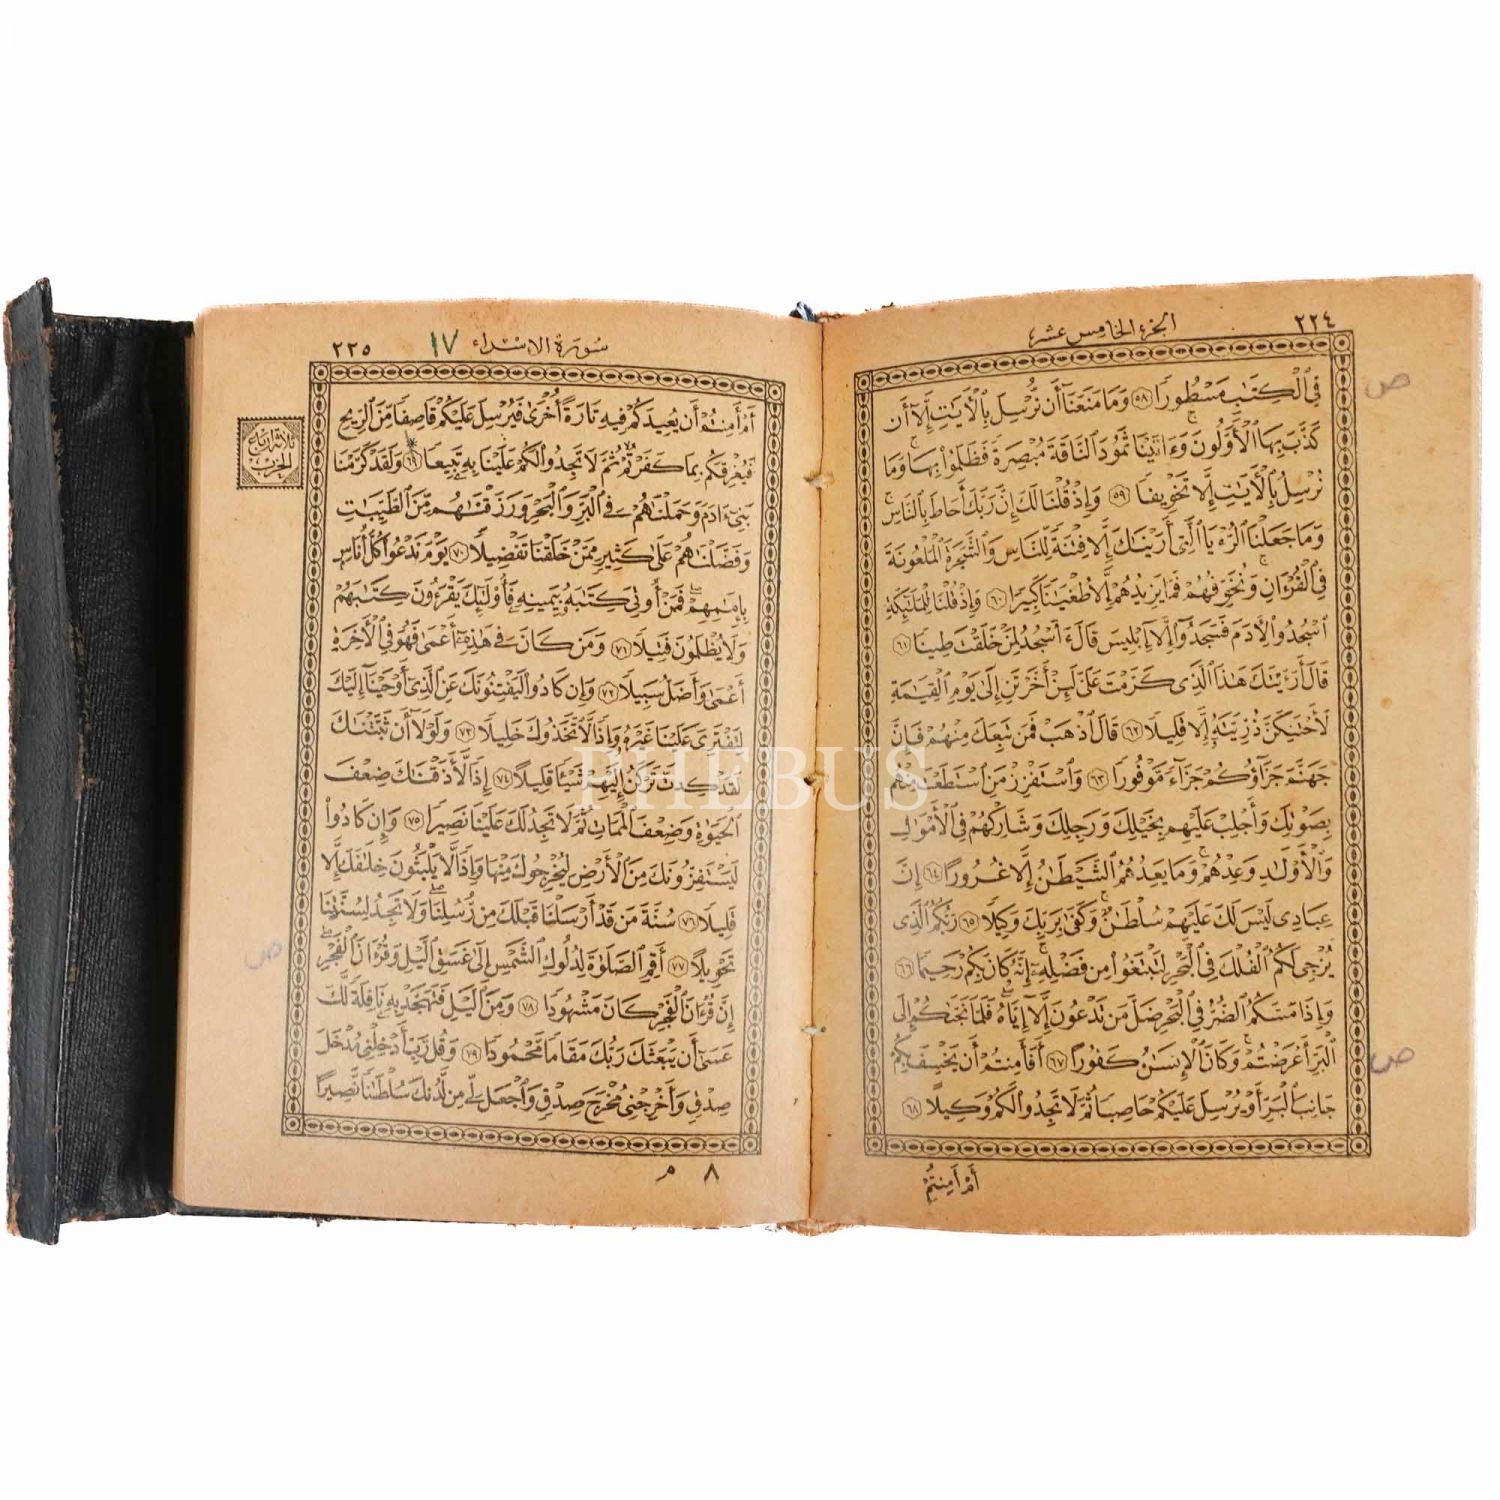 ٢٢٤
الجزء الخامس عشر
فِي ٱلْكِتَٰبِ مَسْطُورًا ٥٨ وَمَا مَنَعَنَآ أَن نُّرْسِلَ بِٱلْأَيَٰتِ إِلَّآ أَن
كَذَّبَ بِهَا ٱلْأَوَّلُونَ ۚ وَءَاتَيْنَا ثَمُودَ ٱلنَّاقَةَ مُبْصِرَةً فَظَلَمُوا۟ بِهَا ۚ وَمَا
نُرْسِلُ بِٱلْأَيَٰتِ إِلَّا تَخْوِيفًا ٥٩ وَإِذْ قُلْنَا لَكَ إِنَّ رَبَّكَ أَحَاطَ بِٱلنَّاسِ ۚ
وَمَا جَعَلْنَا ٱلرُّءْيَا ٱلَّتِىٓ أَرَيْنَٰكَ إِلَّا فِتْنَةً لِّلنَّاسِ وَٱلشَّجَرَةَ ٱلْمَلْعُونَةَ
فِي ٱلْقُرْءَانِ ۚ وَنُخَوِّفُهُمْ فَمَا يَزِيدُهُمْ إِلَّا طُغْيَٰنًا كَبِيرًا ٦٠ وَإِذْ قُلْنَا لِلْمَلَٰٓئِكَةِ
ٱسْجُدُوا۟ لِأَدَمَ فَسَجَدُوٓا۟ إِلَّآ إِبْلِيسَ قَالَ ءَأَسْجُدُ لِمَنْ خَلَقْتَ طِينًا ٦١
قَالَ أَرَءَيْتَكَ هَٰذَا ٱلَّذِى كَرَّمْتَ عَلَىَّ لَئِنْ أَخَّرْتَنِ إِلَىٰ يَوْمِ ٱلْقِيَٰمَةِ
لَأَحْتَنِكَنَّ ذُرِّيَّتَهُۥٓ إِلَّا قَلِيلًا ٦٢ قَالَ ٱذْهَبْ فَمَن تَبِعَكَ مِنْهُمْ فَإِنَّ
جَهَنَّمَ جَزَآؤُكُمْ جَزَآءً مَّوْفُورًا ٦٣ وَٱسْتَفْزِزْ مَنِ ٱسْتَطَعْتَ مِنْهُم
بِصَوْتِكَ وَأَجْلِبْ عَلَيْهِم بِخَيْلِكَ وَرَجِلِكَ وَشَارِكْهُمْ فِي ٱلْأَمْوَٰلِ
وَٱلْأَوْلَٰدِ وَعِدْهُمْ ۚ وَمَا يَعِدُهُمُ ٱلشَّيْطَٰنُ إِلَّا غُرُورًا ٦٤ إِنَّ
عِبَادِى لَيْسَ لَكَ عَلَيْهِمْ سُلْطَٰنٌ ۚ وَكَفَىٰ بِرَبِّكَ وَكِيلًا ٦٥ رَّبُّكُمُ ٱلَّذِى
يُزْجِى لَكُمُ ٱلْفُلْكَ فِي ٱلْبَحْرِ لِتَبْتَغُوا۟ مِن فَضْلِهِۦٓ ۚ إِنَّهُۥ كَانَ بِكُمْ رَحِيمًا ٦٦
وَإِذَا مَسَّكُمُ ٱلضُّرُّ فِي ٱلْبَحْرِ ضَلَّ مَن تَدْعُونَ إِلَّآ إِيَّاهُ ۖ فَلَمَّا نَجَّىٰكُمْ إِلَى
ٱلْبَرِّ أَعْرَضْتُمْ ۚ وَكَانَ ٱلْإِنسَٰنُ كَفُورًا ٦٧ أَفَأَمِنتُمْ أَن يَخْسِفَ بِكُمْ
جَانِبَ ٱلْبَرِّ أَوْ يُرْسِلَ عَلَيْكُمْ حَاصِبًا ثُمَّ لَا تَجِدُوا۟ لَكُمْ وَكِيلًا ٦٨
أَمْ أَمِنتُمْ
ص
ص
سورة الإسراء
١٧
٢٢٥
أَمْ أَمِنتُمْ أَن يُعِيدَكُمْ فِيهِ تَارَةً أُخْرَىٰ فَيُرْسِلَ عَلَيْكُمْ قَاصِفًا مِّنَ ٱلرِّيحِ
فَيُغْرِقَكُم بِمَا كَفَرْتُمْ ۙ ثُمَّ لَا تَجِدُوا۟ لَكُمْ عَلَيْنَا بِهِۦ تَبِيعًا ٦٩ وَلَقَدْ كَرَّمْنَا
بَنِىٓ ءَادَمَ وَحَمَلْنَٰهُمْ فِي ٱلْبَرِّ وَٱلْبَحْرِ وَرَزَقْنَٰهُم مِّنَ ٱلطَّيِّبَٰتِ
وَفَضَّلْنَٰهُمْ عَلَىٰ كَثِيرٍ مِّمَّنْ خَلَقْنَا تَفْضِيلًا ٧٠ يَوْمَ نَدْعُوا۟ كُلَّ أُنَاسٍۭ
بِإِمَٰمِهِمْ ۖ فَمَنْ أُوتِىَ كِتَٰبَهُۥ بِيَمِينِهِۦ فَأُو۟لَٰٓئِكَ يَقْرَءُونَ كِتَٰبَهُمْ
وَلَا يُظْلَمُونَ فَتِيلًا ٧١ وَمَن كَانَ فِي هَٰذِهِۦٓ أَعْمَىٰ فَهُوَ فِي ٱلْأَخِرَةِ
أَعْمَىٰ وَأَضَلُّ سَبِيلًا ٧٢ وَإِن كَادُوا۟ لَيَفْتِنُونَكَ عَنِ ٱلَّذِىٓ أَوْحَيْنَآ إِلَيْكَ
لِتَفْتَرِىَ عَلَيْنَا غَيْرَهُۥ ۖ وَإِذًا لَّٱتَّخَذُوكَ خَلِيلًا ٧٣ وَلَوْلَآ أَن ثَبَّتْنَٰكَ
لَقَدْ كِدتَّ تَرْكَنُ إِلَيْهِمْ شَيْـًٔا قَلِيلًا ٧٤ إِذًا لَّأَذَقْنَٰكَ ضِعْفَ
ٱلْحَيَوٰةِ وَضِعْفَ ٱلْمَمَاتِ ثُمَّ لَا تَجِدُ لَكَ عَلَيْنَا نَصِيرًا ٧٥ وَإِن كَادُوا۟
لَيَسْتَفِزُّونَكَ مِنَ ٱلْأَرْضِ لِيُخْرِجُوكَ مِنْهَا وَإِذًا لَّا يَلْبَثُونَ خِلَٰفَكَ إِلَّا
قَلِيلًا ٧٦ سُنَّةَ مَن قَدْ أَرْسَلْنَا قَبْلَكَ مِن رُّسُلِنَا ۖ وَلَا تَجِدُ لِسُنَّتِنَا
تَحْوِيلًا ٧٧ أَقِمِ ٱلصَّلَوٰةَ لِدُلُوكِ ٱلشَّمْسِ إِلَىٰ غَسَقِ ٱلَّيْلِ وَقُرْءَانَ ٱلْفَجْرِ ۖ
إِنَّ قُرْءَانَ ٱلْفَجْرِ كَانَ مَشْهُودًا ٧٨ وَمِنَ ٱلَّيْلِ فَتَهَجَّدْ بِهِۦ نَافِلَةً لَّكَ
عَسَىٰٓ أَن يَبْعَثَكَ رَبُّكَ مَقَامًا مَّحْمُودًا ٧٩ وَقُل رَّبِّ أَدْخِلْنِى مُدْخَلَ
صِدْقٍ وَأَخْرِجْنِى مُخْرَجَ صِدْقٍ وَٱجْعَل لِّى مِن لَّدُنكَ سُلْطَٰنًا نَّصِيرًا
٨ م
ثلاثة أرباع
الحزب
ص
PHEBUS